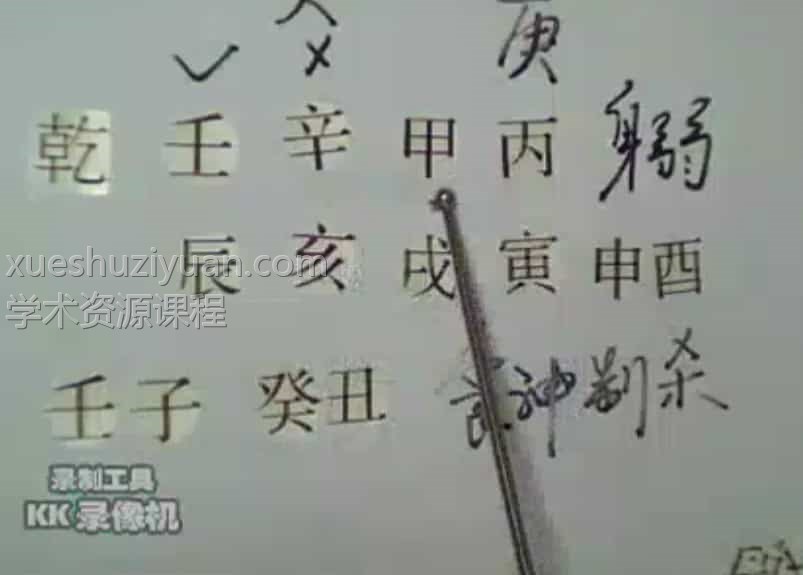 庚
乾 壬 辛 甲 丙 身弱
辰 亥 戌 寅 申酉
xueshuziyuan.com
学术资源课程
壬子 癸丑 食神制杀
录制工具
KK 录像机